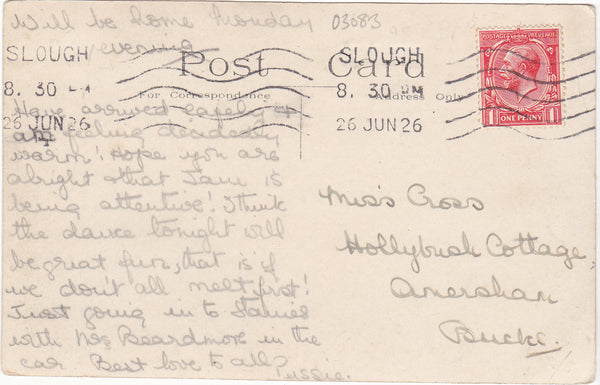 Will be home Monday
evening
03083
SLOUGH
8. 30 PM
26 JUN 26
SLOUGH
8. 30 PM
26 JUN 26
POSTAGE REVENUE
ONE PENNY
Post Card
For Correspondence
Address Only
Have arrived safely &
am feeling decidedly
warm! Hope you are
alright & that Jam is
being attentive! Think
the dance tonight will
be great fun, that is if
we don't all melt first!
Just going in to Staines
with Mrs Beardmore in the
car Best love to all
Pussie.
Miss Cross
Hollybush Cottage,
Amersham
Bucks.